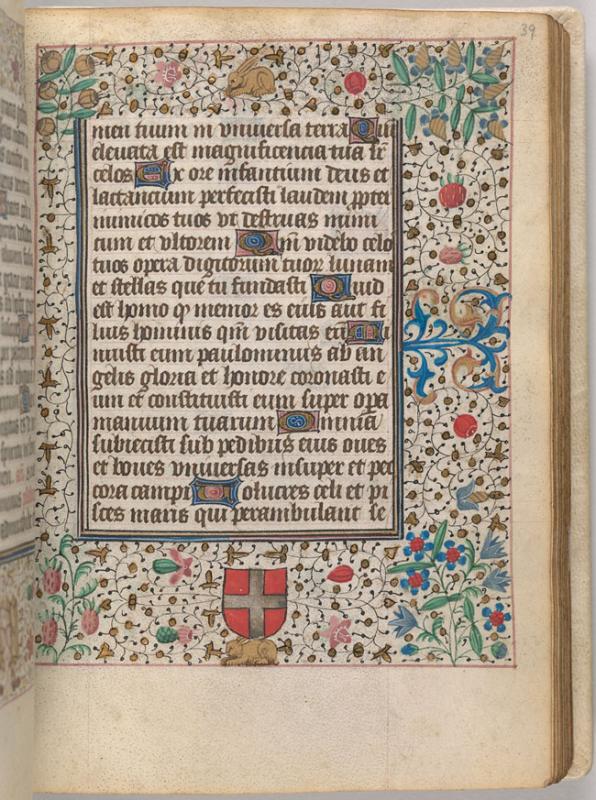 39
men tuum in vniuersa terra Qm̄
eleuata est magnificencia tua sr̄
celos Ex ore infantium deus et
lactancium perfecisti laudem ꝓpter
inimicos tuos vt destruas inimi
cum et vltorem Qm̄ videbo celos
tuos opera digitorum tuoꝝ lunam
et stellas que tu fundasti Quid
est homo qꝫ memor es eius aut fi
lius hominis qm̄ visitas eū Mi
nuisti eum paulominus ab an
gelis gloria et honore coronasti e
um et constituisti eum super opa
manuum tuarum Omnia
subiecisti sub pedibus eius oues
et boues vniuersas insuper et pec
cora campi Volucres celi et pi
sces maris qui perambulant se